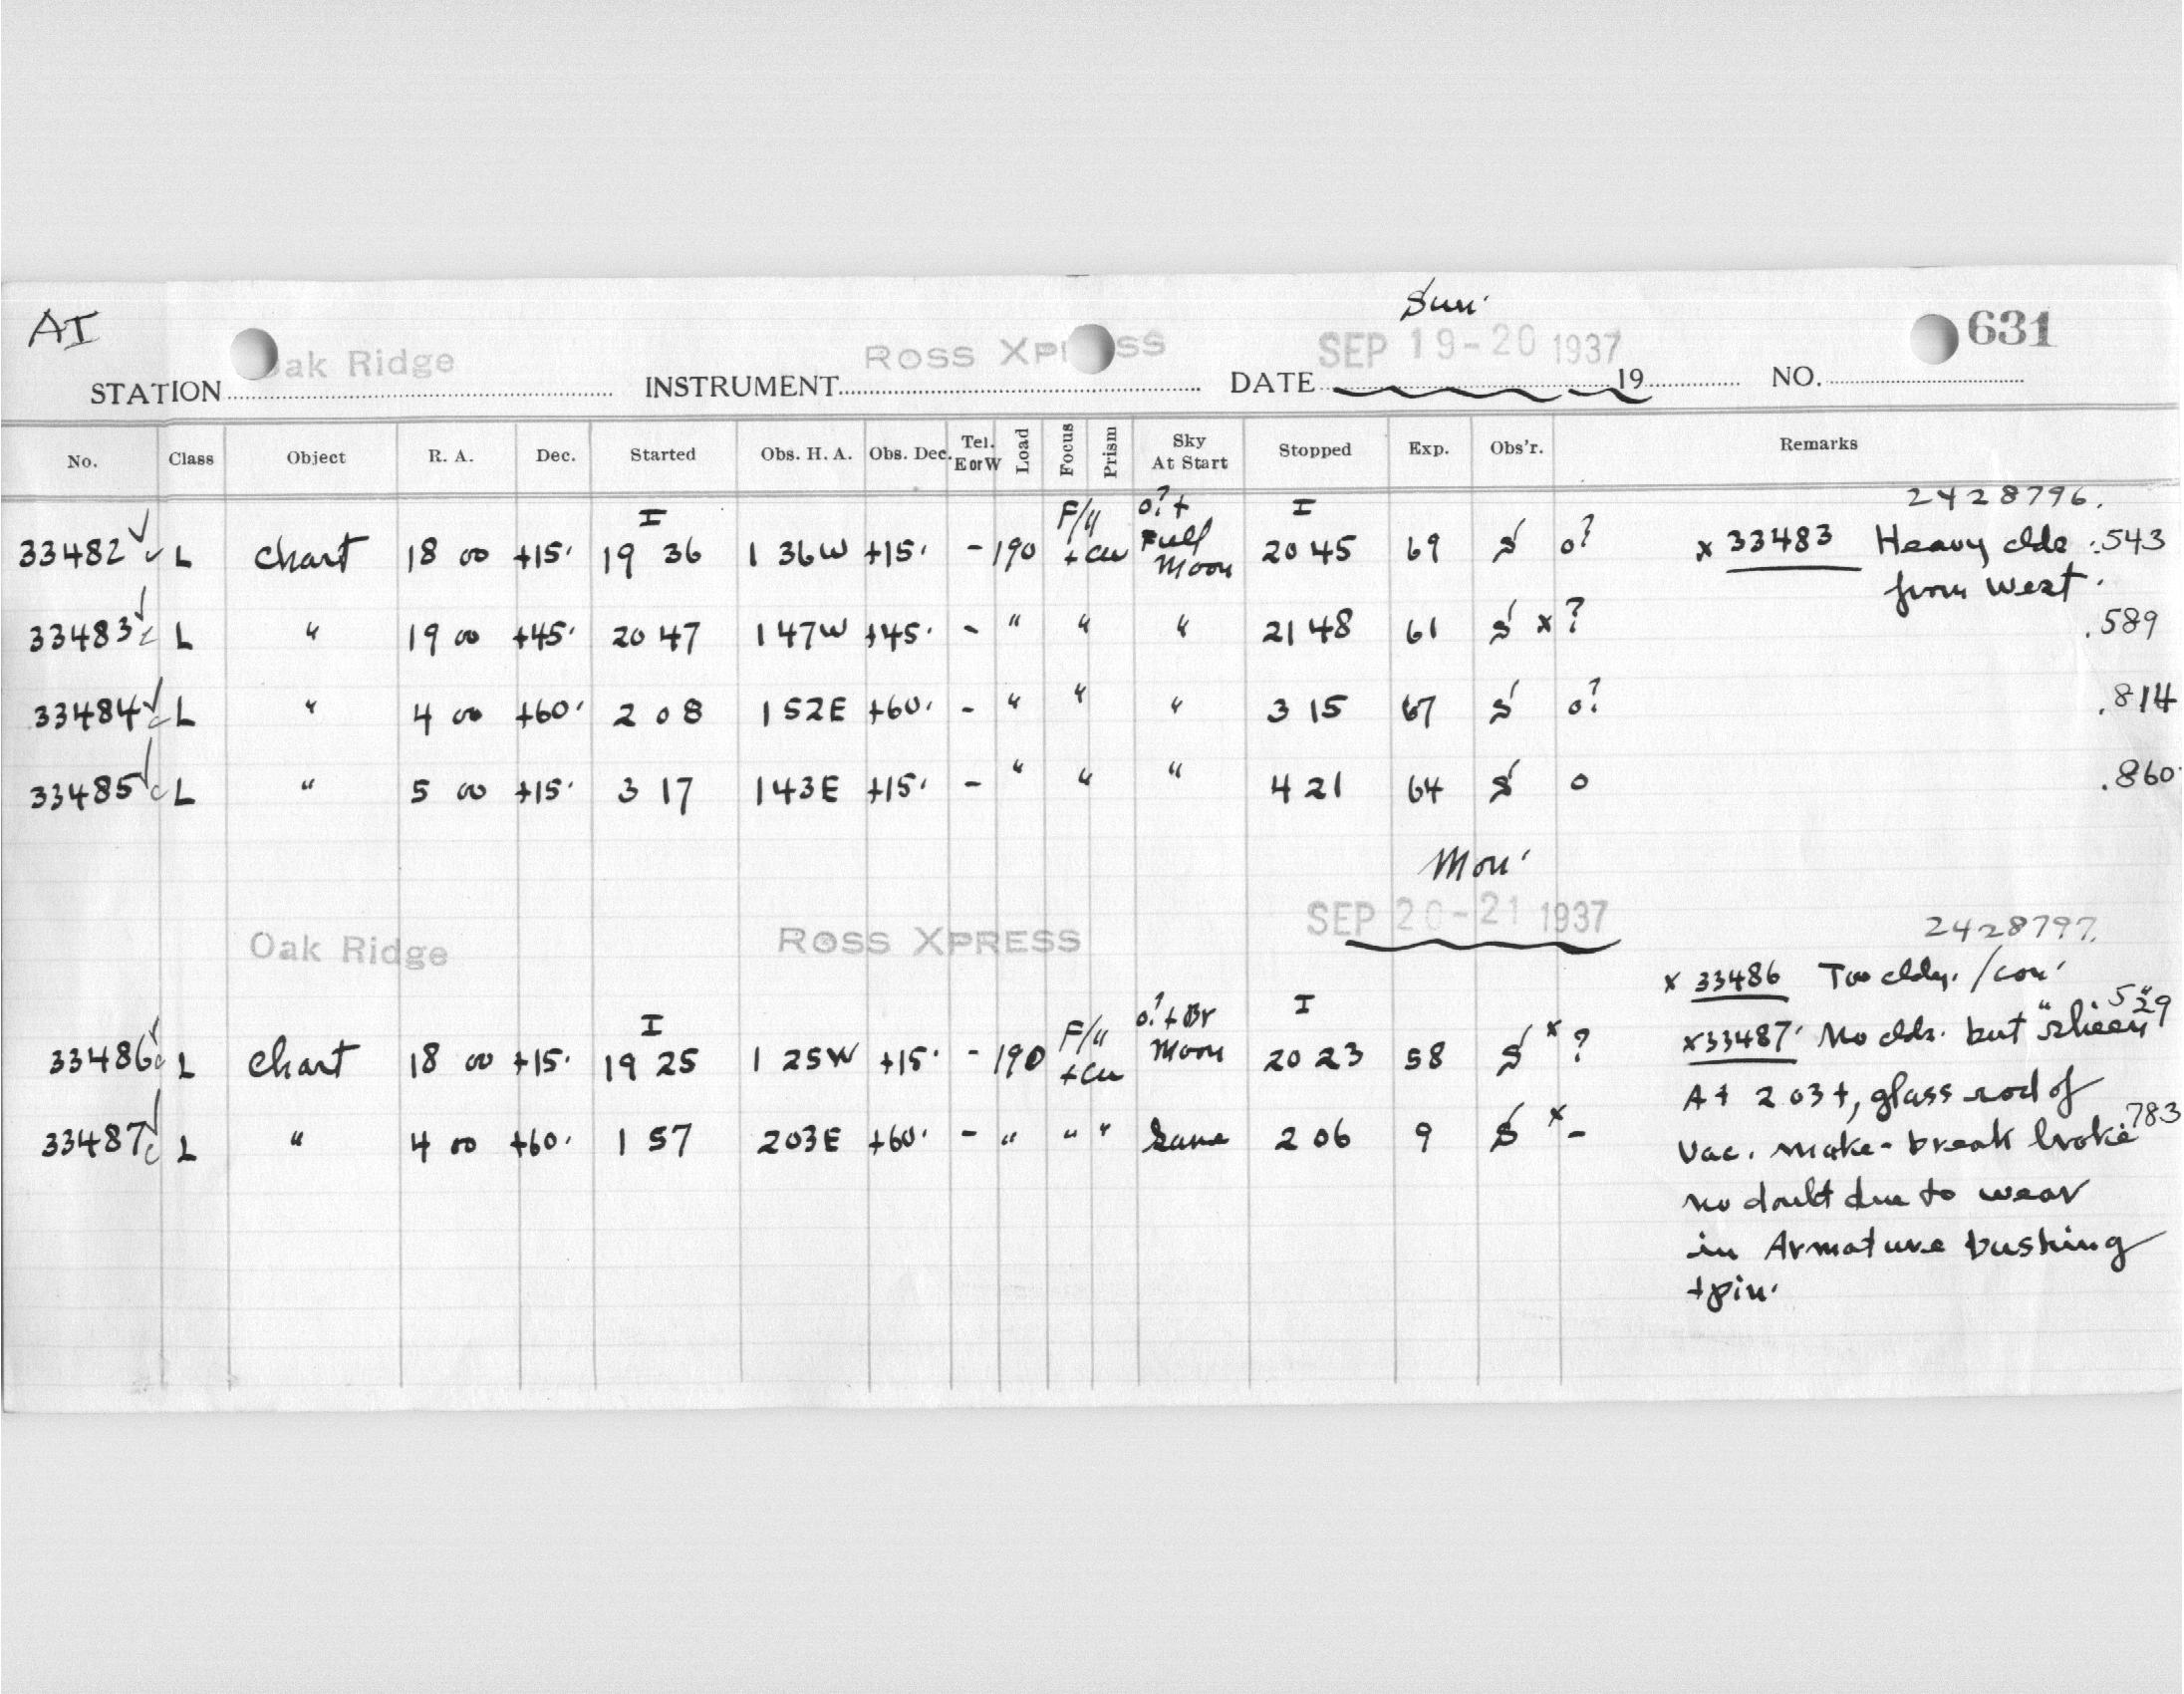 AI
Sun.
Oak Ridge ROSS XPRESS SEP 19-20 1937 631
STATION INSTRUMENT DATE 19 NO.
No. Class Object R. A. Dec. Started Obs. H. A. Obs. Dec. Tel. E or W Load Focus Prism Sky At Start Stopped Exp. Obs'r. Remarks
2428796.
I F/4 o? + I
33482 ✓ L Chart 18 00 +15. 19 36 1 36W +15. - 190 +cu Full Moon 20 45 69 S o? x 33483 Heavy clds. .543
from West.
33483 ✓ L " 19 00 +45. 20 47 1 47W +45. - " " " 21 48 61 S x ? .589
33484 ✓ L " 4 00 +60. 2 08 1 52E +60. - " " " 3 15 67 S o? .814
33485 ✓ L " 5 00 +15. 3 17 1 43E +15. - " " " 4 21 64 S o .860
Mon.
Oak Ridge ROSS XPRESS SEP 20-21 1937
2428797.
x 33486 Too cldy. /con.
I F/4 o? + Br I .529
33486 ✓ L Chart 18 00 +15. 19 25 1 25W +15. - 190 +cu Moon 20 23 58 S x ? x 33487. No clds. but "sheen"
At 2 03+, glass rod of
33487 ✓ L " 4 00 +60. 1 57 2 03E +60. - " " " Same 2 06 9 S x - .783
Vac. make-break broke
no doubt due to wear
in Armature bushing
+ pin.